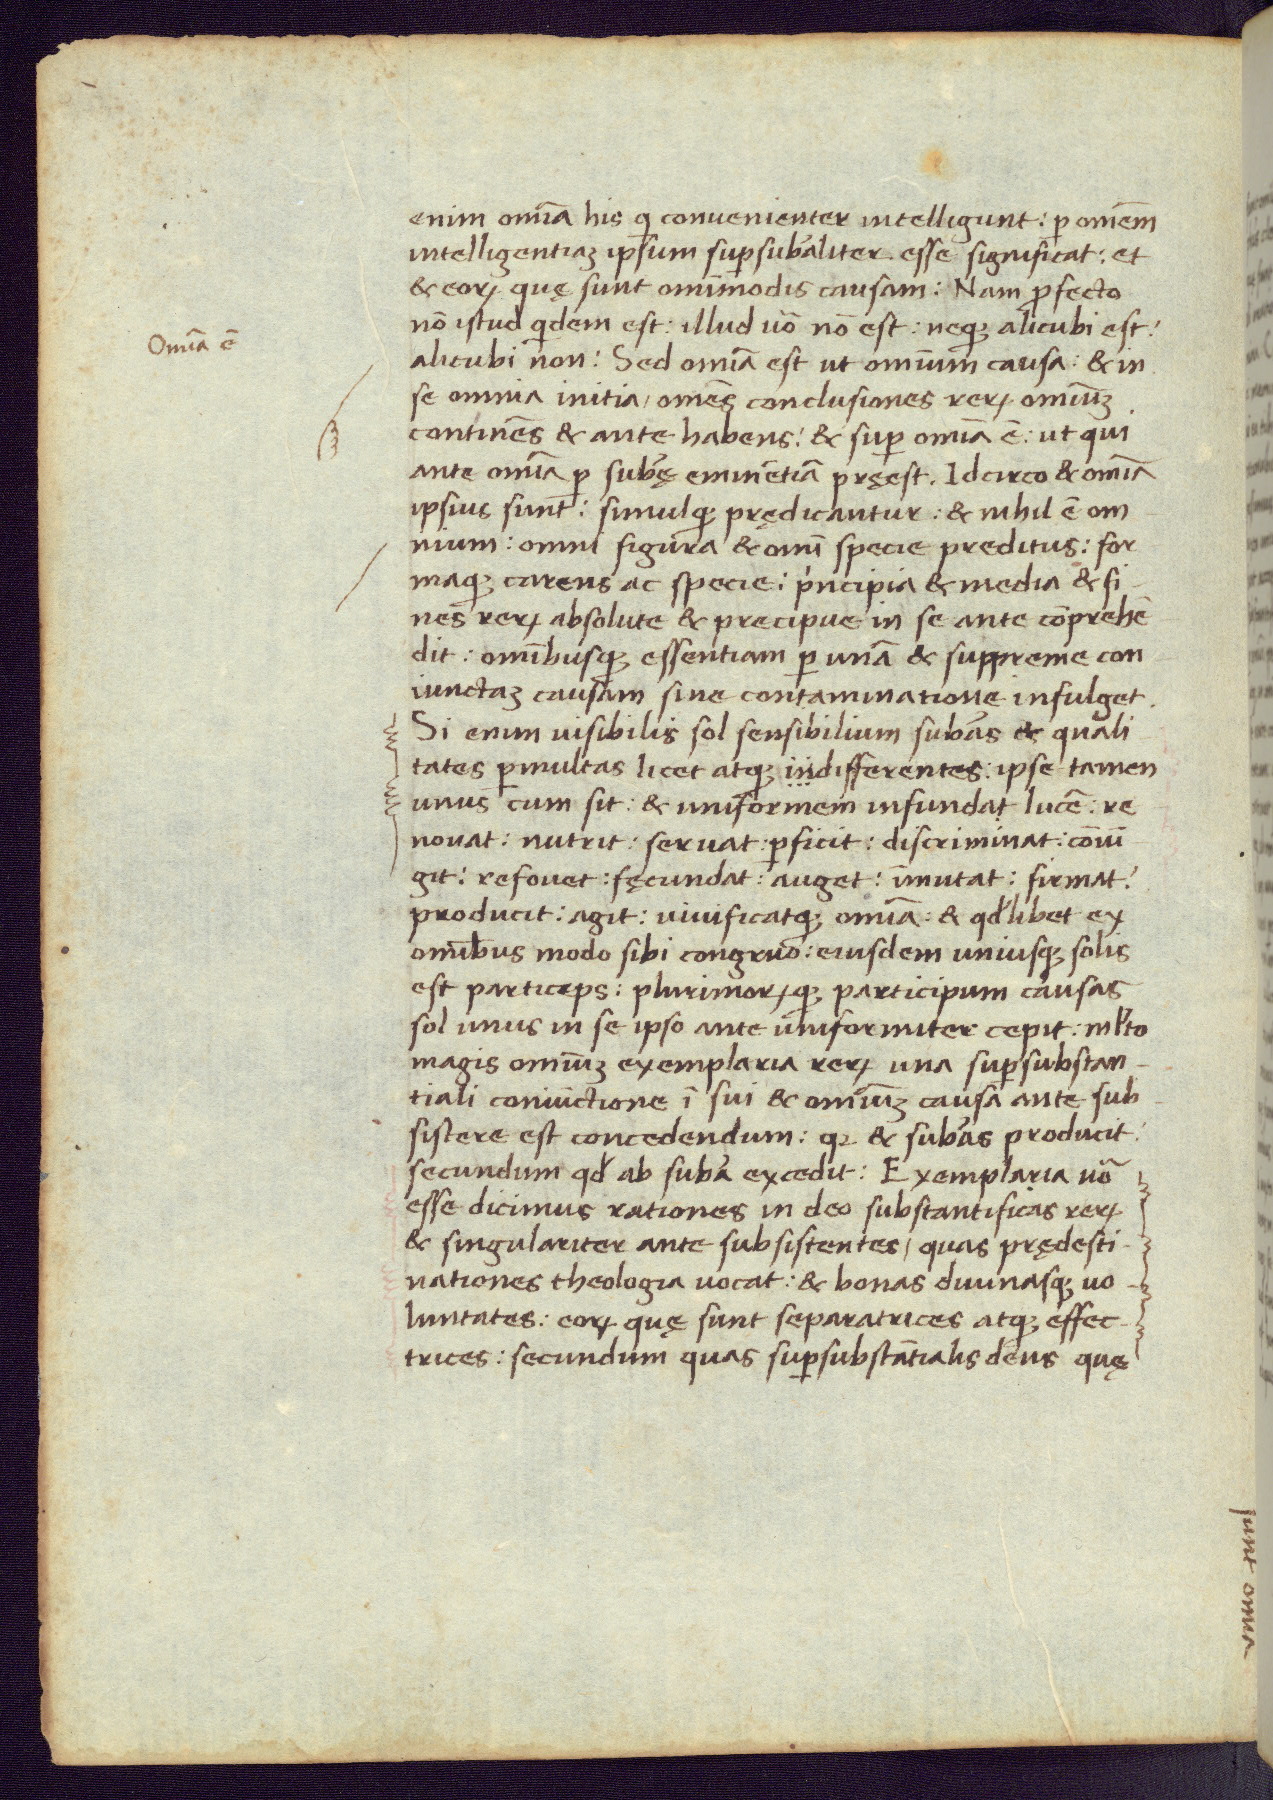 enim omīa his q convenienter intelligunt: ꝑ omēm
intelligentiaꝫ ipsum suꝑsubāliter esse significat: et
& eoꝝ quę sunt omīmodis causam: Nam ꝓfecto
nō istud qdem est: illud uō nō est: neqꝫ alicubi est:
Omīa ē
alicubi non: Sed omīa est ut omīum causa: & in
se omnia initia, omēs conclusiones reꝝ omīuꝫ
continēs & ante habens: & suꝑ omīa ē: ut qui
ante omīa ꝑ subę eminētiā pręest. Idcirco & omīa
ipsius sunt: simulqꝫ prędicantur: & nihil ē om
nium: omni figura & omī specie preditus: for
maqꝫ carens ac specie: pncipia & media & fi-
nes reꝝ absolute & precipue in se ante cōprehē
dit: omībusqꝫ essentiam ꝑ unā & suppreme con
iunctaꝫ causam sine contaminatione infulget.
Si enim visibilis sol sensibilium subās & quali-
tates ꝑmultas licet atqꝫ indifferentes: ipse tamen
unus cum sit: & uniformem infundat lucē: re
novat: nutrit: servat: ꝑficit: discriminat: cōiū
git: refovet: fęcundat: auget: īmutat: firmat:
producit: agit: vivificatqꝫ omīa: & qđlibet ex
omībus modo sibi congruo: eiusdem uniusqꝫ solis
est particeps: plurimoꝝqꝫ participum causas
sol unus in se ipso ante uniformiter cepit: mlto
magis omīuꝫ exemplaria reꝝ una suꝑsubstan-
tiali coniūctione ī sui & omīuꝫ causa ante sub-
sistere est concedendum: qꝫ & subās producit:
secundum qđ ab subā excedit: Exemplaria uō
esse dicimus rationes in deo substantificas reꝝ
& singulariter ante subsistentes, quas prędesti-
nationes theologia vocat: & bonas divinasqꝫ vo-
luntates: eoꝝ quę sunt separatrices atqꝫ effec-
trices: secundum quas suꝑsubstātialis deus quę
sunt omīa